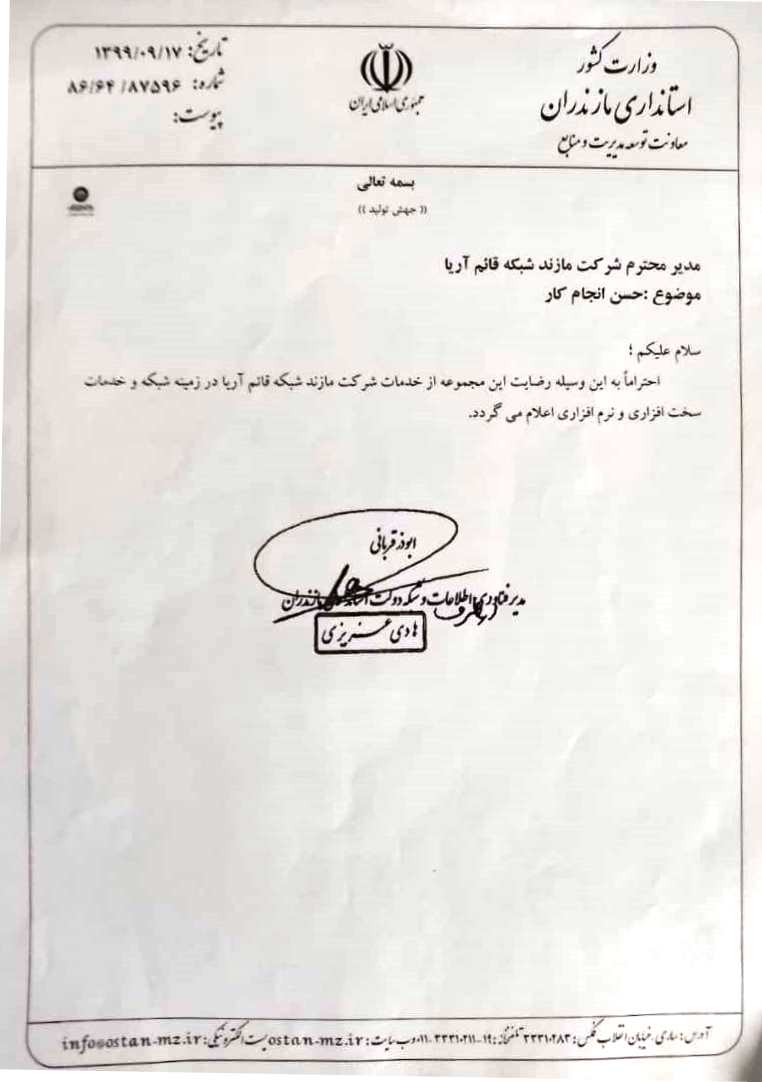 وزارت کشور
استانداری مازندران
معاونت توسعه مدیریت و منابع
جمهوری اسلامی ایران
تاریخ: ۱۳۹۹/۰۹/۱۷
شماره: ۸۶/۶۴ /۸۷۵۹۶
پیوست:
بسمه تعالی
(( جهش تولید ))
مدیر محترم شرکت مازند شبکه قائم آریا
موضوع :حسن انجام کار
سلام علیکم ؛
احتراماً به این وسیله رضایت این مجموعه از خدمات شرکت مازند شبکه قائم آریا در زمینه شبکه و خدمات
سخت افزاری و نرم افزاری اعلام می گردد.
ابوذر قربانی
مدیر فناوری اطلاعات و شبکه دولت استانداری مازندران
از طرف
هادی عزیزی
آدرس: ساری، خیابان انقلاب فکس: ۳۳۳۱۰۲۸۳ تلفنخانه: ۱۹-۰۱۱-۳۳۳۱۰۲۱۱ وب سایت: ostan-mz.ir پست الکترونیکی: info@ostan-mz.ir